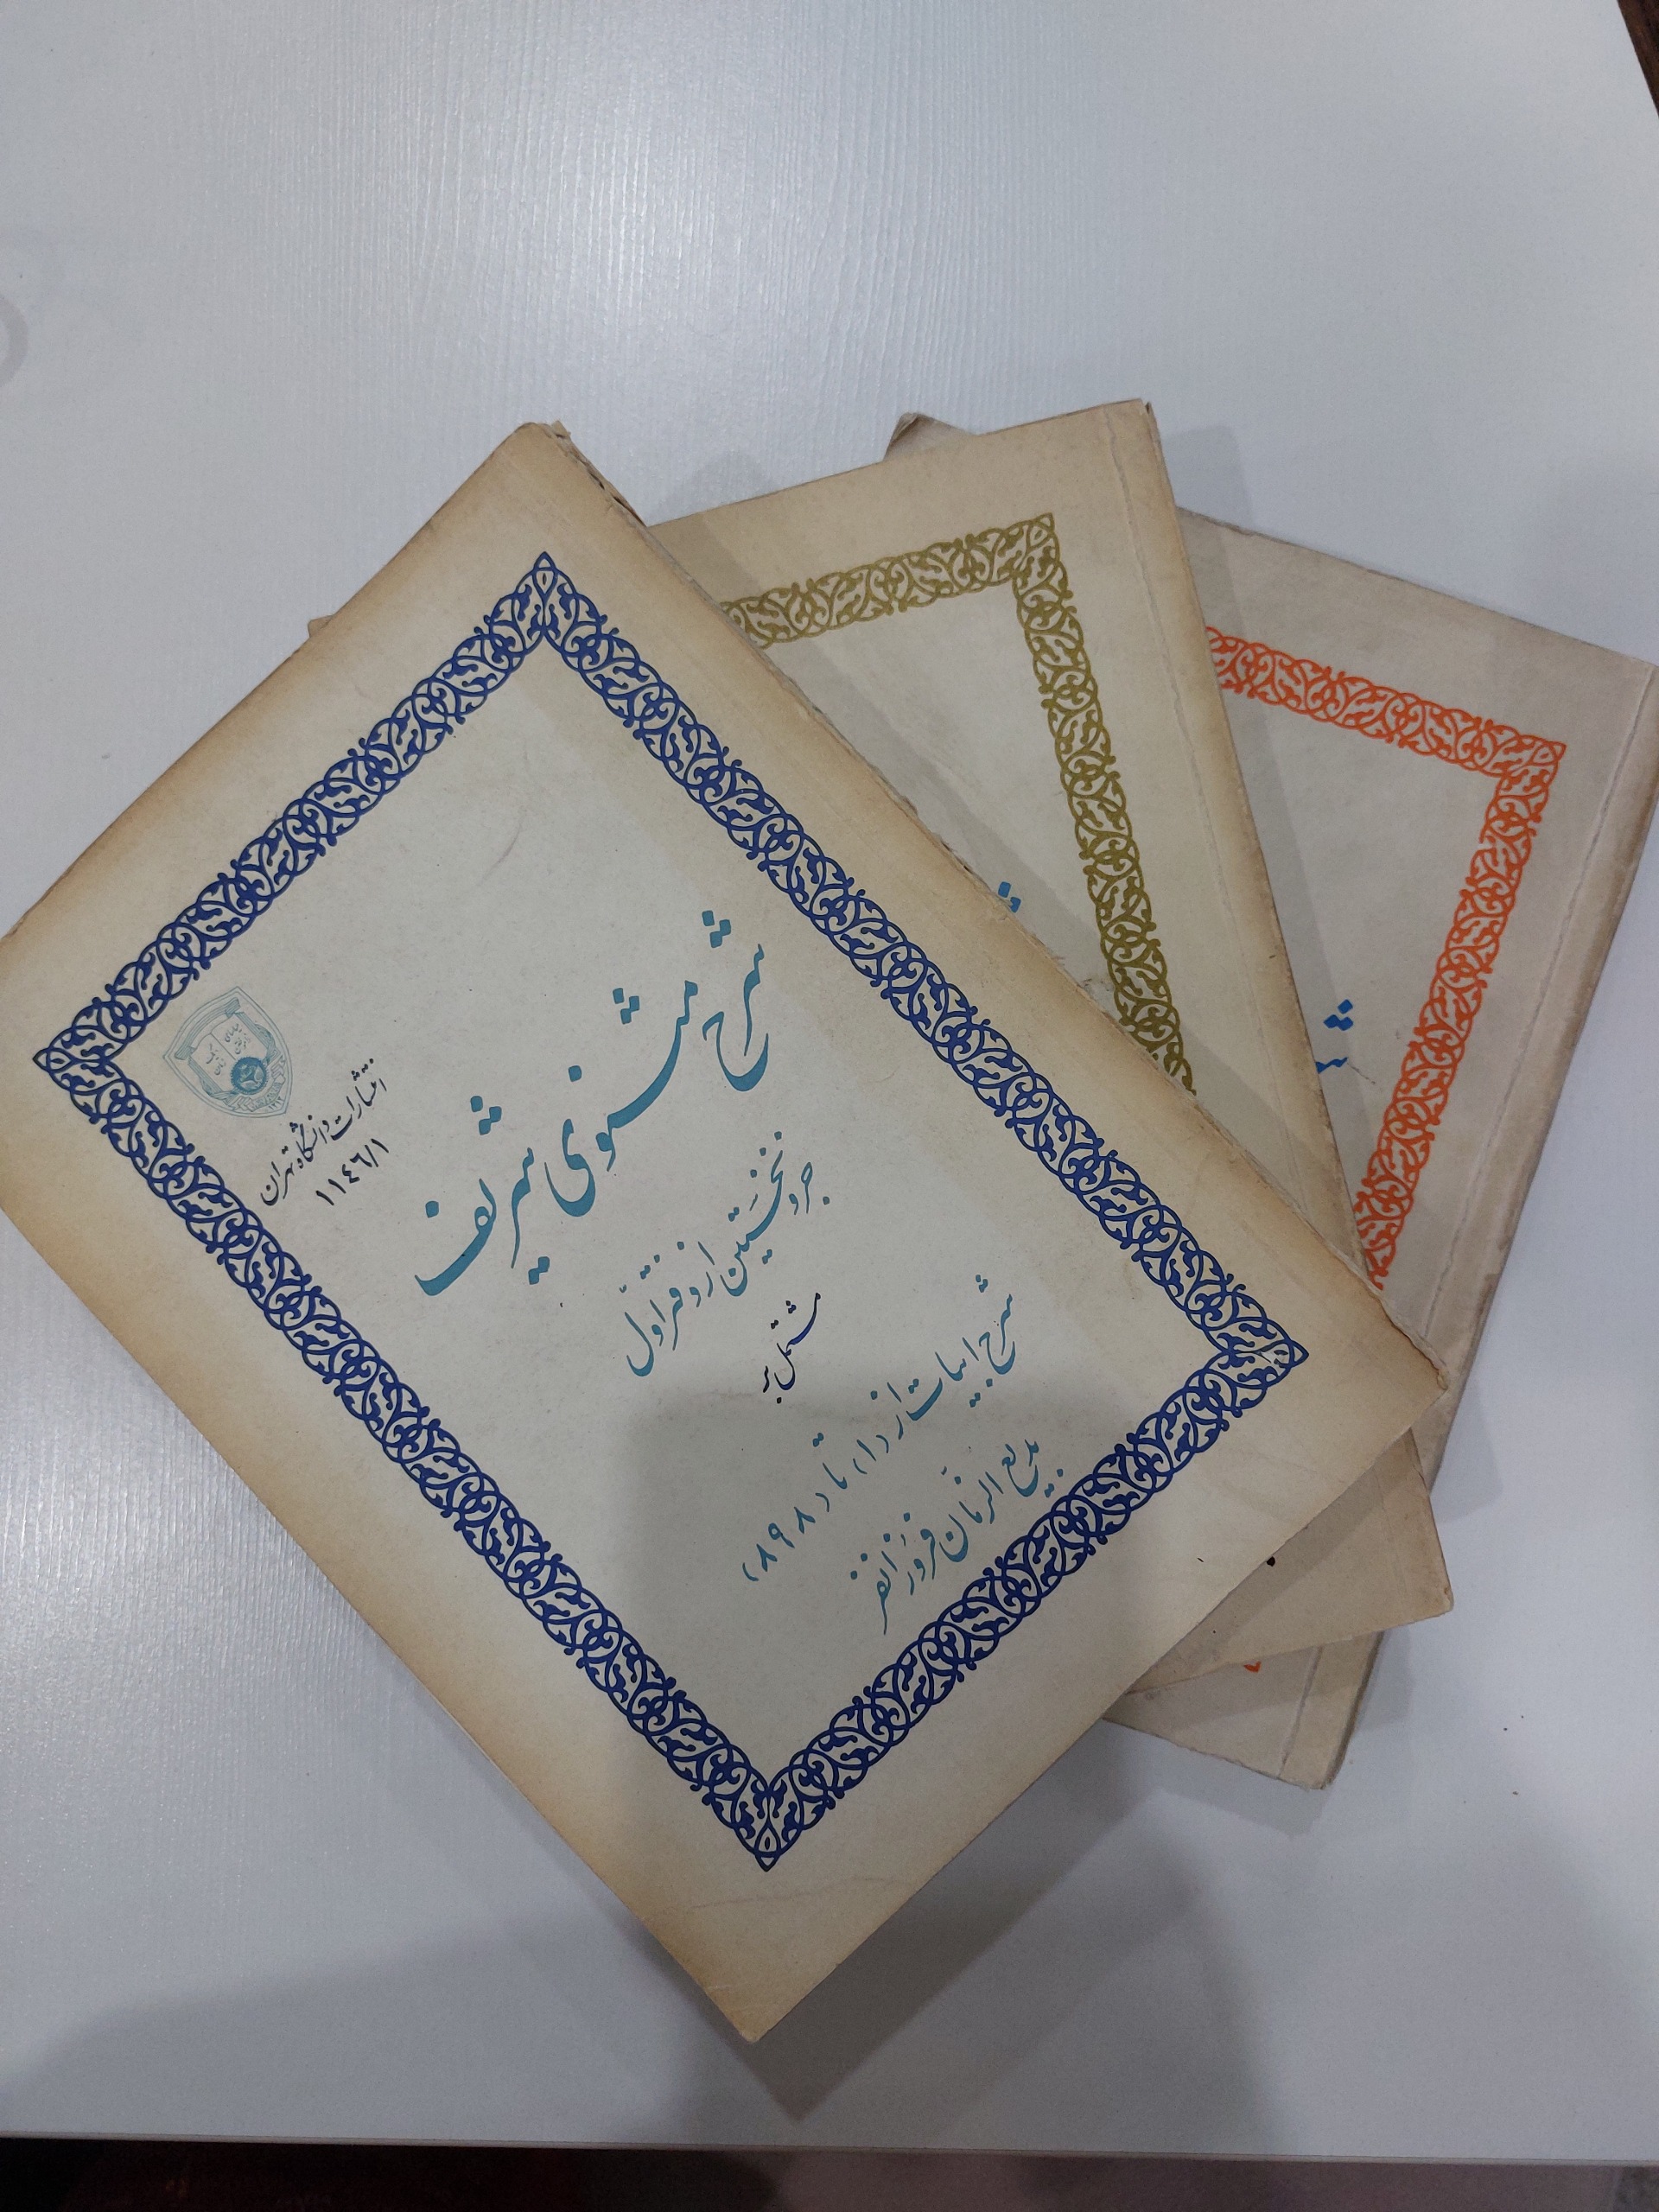 شرح مثنوی شریف
جزو نخستین از دفتر اول
مشتمل بر
شرح ابیات از (۱) تا (۸۹۸)
بدیع الزمان فروزانفر
انتشارات دانشگاه تهران
۱۱۴۶/۱